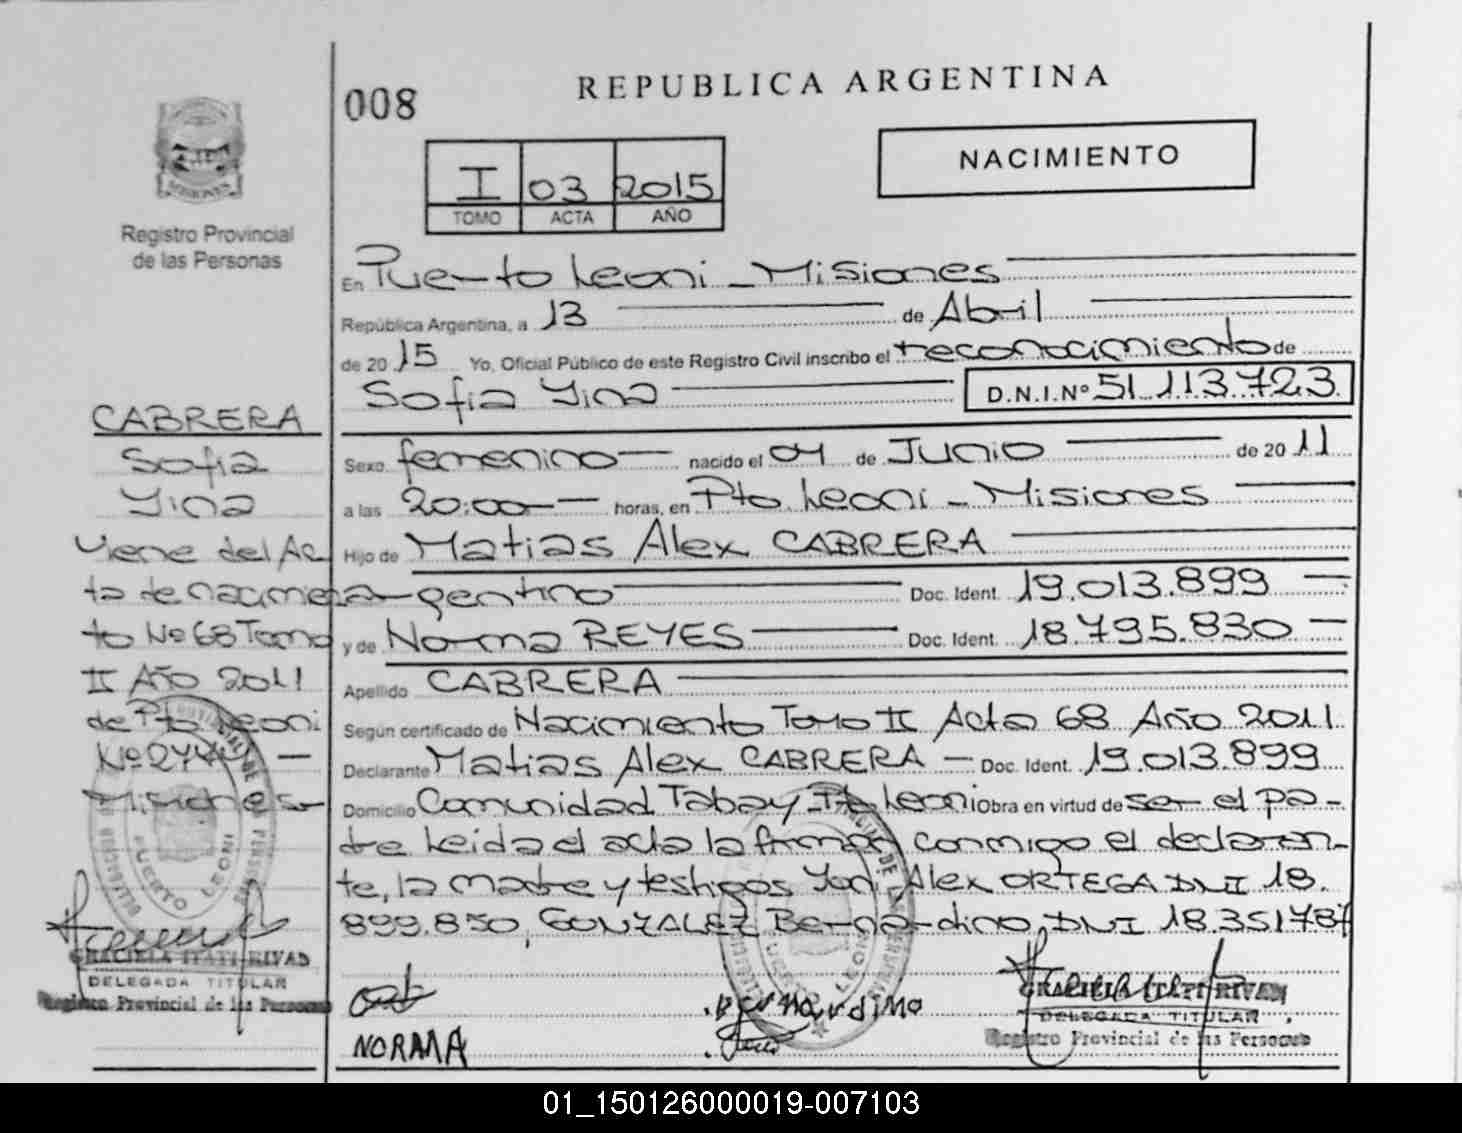 008
REPUBLICA ARGENTINA
NACIMIENTO
I 03 2015
TOMO ACTA AÑO
MISIONES
Registro Provincial
de las Personas
En Puerto Leoni - Misiones
República Argentina, a 13 de Abril
de 20 15 Yo, Oficial Público de este Registro Civil inscribo el reconocimiento de
Sofia Yina D.N.I.Nº 51.113.723
Sexo femenino nacido el 04 de Junio de 20 11
a las 20:00 horas, en Pto Leoni - Misiones
Hijo de Matias Alex CABRERA
argentino Doc. Ident. 19.013.899
y de Norma REYES Doc. Ident. 18.795.830
Apellido CABRERA
Según certificado de Nacimiento Tomo II Acta 68 Año 2011
Declarante Matias Alex CABRERA - Doc. Ident. 19.013.899
Domicilio Comunidad Tabay Pto Leoni Obra en virtud de ser el pa-
dre Leida el acta la firman conmigo el declaran-
te, la madre y testigos Alex ORTEGA DNI 18.
899.850, GONZALEZ Bernardino, DNI 18.351787
CABRERA
Sofia
Yina
Viene del Ac
ta de nacimien
to Nº 68 Tomo
II Año 2011
de Pto Leoni
Misiones
PUERTO LEONI
GRACIELA ITATI RIVAS
DELEGADA TITULAR
Registro Provincial de las Personas
NORMA
Bernardino
GRACIELA ITATI RIVAS
DELEGADA TITULAR
Registro Provincial de las Personas
01_150126000019-007103